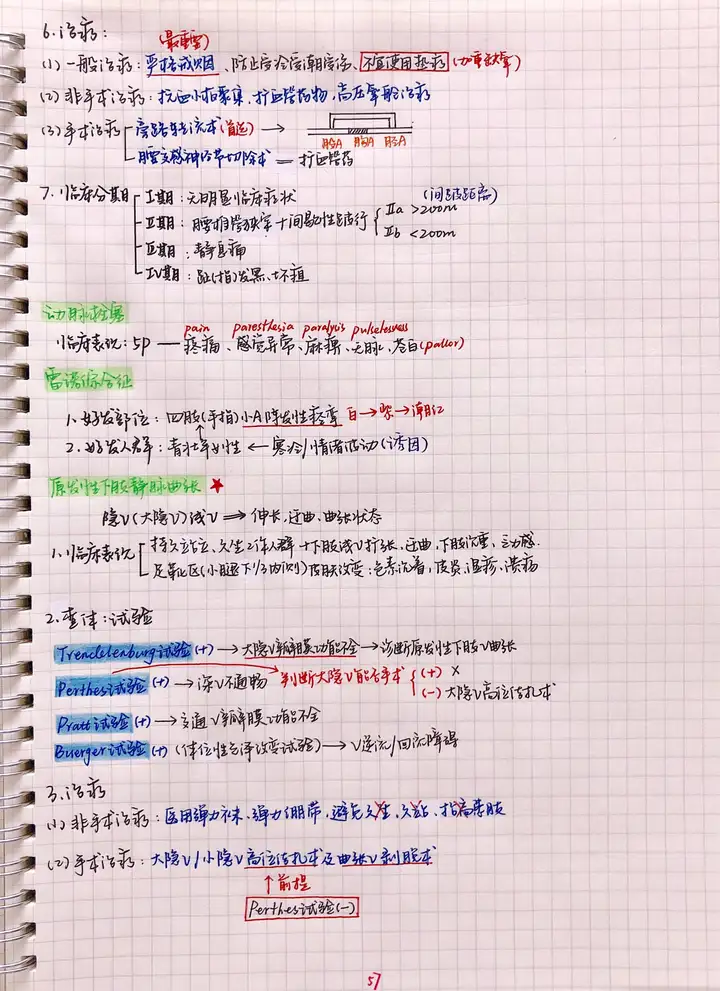 6.治疗:
(最重要)
(1) 一般治疗: 严格戒烟、防止受冷受潮受伤、不宜使用热疗 (加重缺氧)
(2) 非手术治疗: 抗血小板聚集、扩血管药物、高压氧舱治疗
(3) 手术治疗 旁路转流术(首选) →
股A 股A
腰交感神经节切除术 = 扩血管药
(间跛距离)
7.临床分期 I期: 无明显临床症状
II期: 间歇性跛行 IIa >200m
IIb <200m
III期: 静息痛
IV期: 趾(指)发黑、坏疽
动脉栓塞
pain paresthesia paralysis pulselessness
临床表现: 5p — 疼痛、感觉异常、麻痹、无脉、苍白(pallor)
雷诺综合征
1.好发部位: 四肢(手指)小A阵发性痉挛 白→紫→潮红
2.好发人群: 青壮年女性 ← 寒冷/情绪波动(诱因)
原发性下肢静脉曲张 ★
隐V(大隐V)浅V ⇒ 伸长、迂曲、曲张状态
1.临床表现 持久站立、久坐工作人群+下肢浅V扩张、迂曲、下肢沉重、乏力感.
足靴区(小腿下1/3内侧)皮肤改变: 色素沉着, 皮炎、湿疹、溃疡
2.查体: 试验
Trendelenburg试验 (+) → 大隐V瓣膜功能不全 → 诊断原发性下肢V曲张
Perthes试验 (+) → 深V不通畅 判断大隐V能否手术 (+) ×
(-) 大隐V高位结扎术
Pratt试验 (+) → 交通V瓣膜功能不全
Buerger试验 (+) (体位性色泽改变试验) → V逆流/回流障碍
3.治疗
(1) 非手术治疗: 医用弹力袜、弹力绷带、避免久坐、久站、抬高患肢
(2) 手术治疗: 大隐V/小隐V高位结扎术及曲张V剥脱术
↑前提
Perthes试验(-)
57